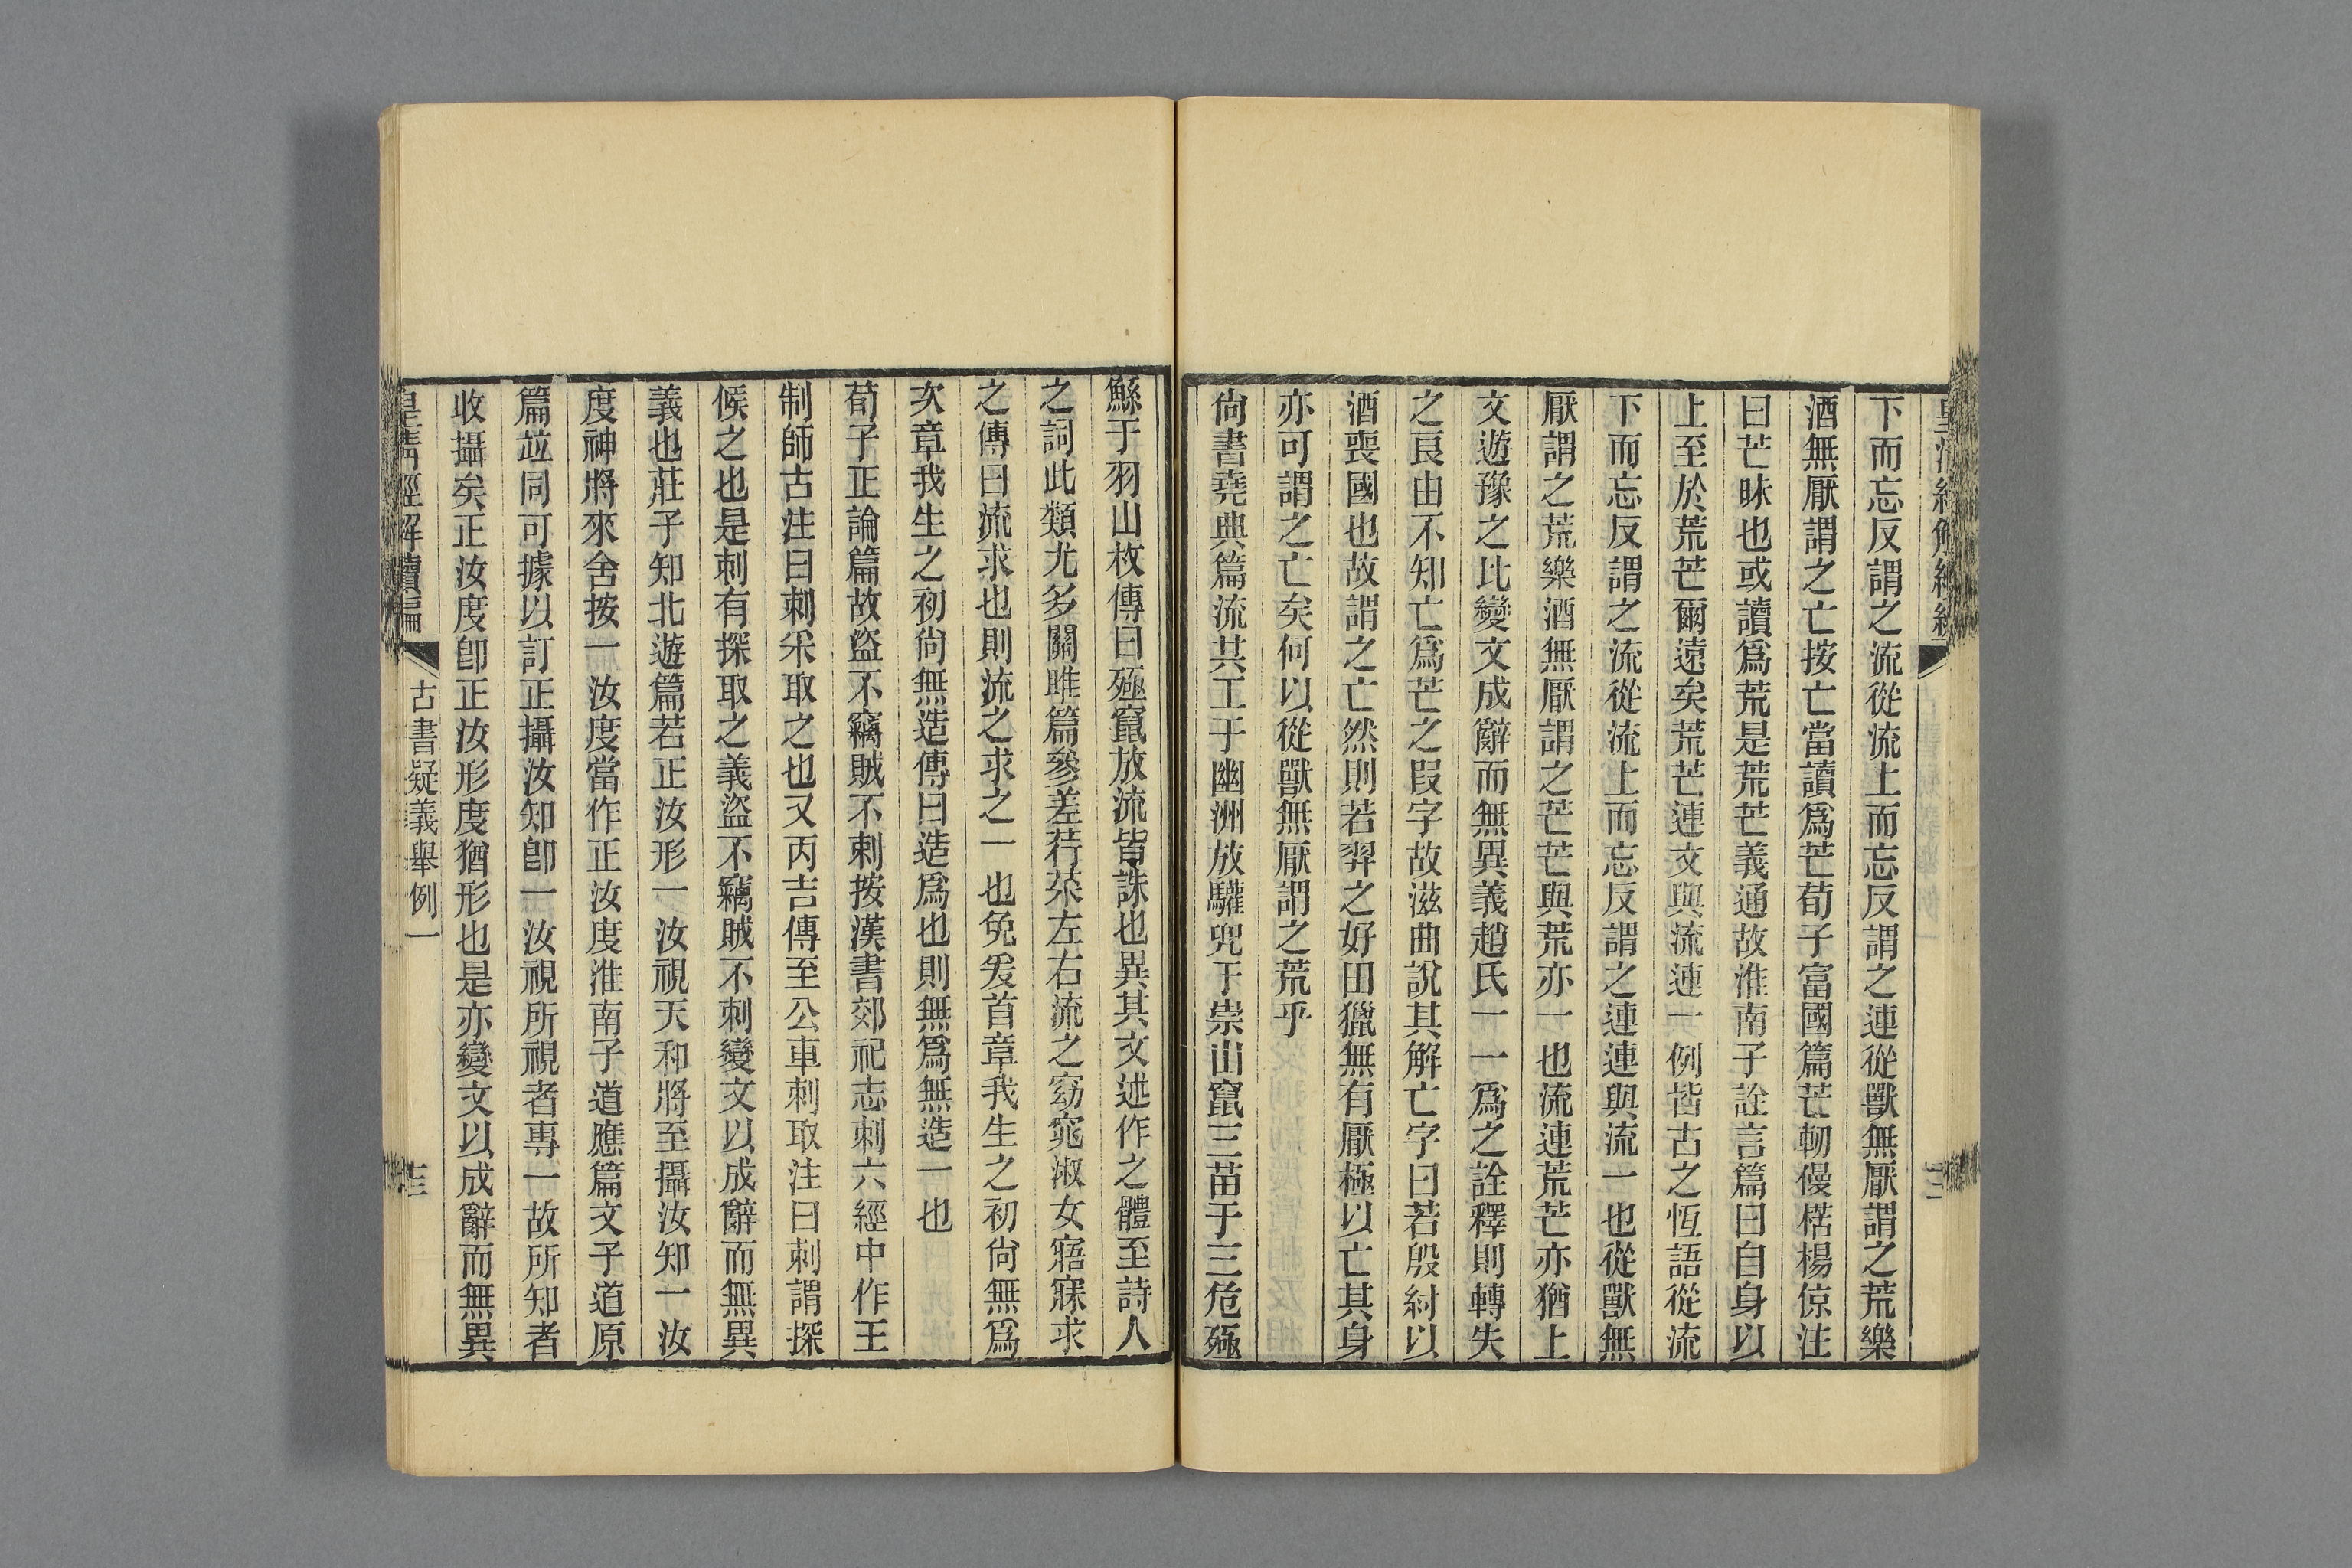 下而忘反謂之流從流上而忘反謂之連從獸無厭謂之荒樂
酒無厭謂之亡按亡當讀爲芒荀子富國篇芒軔僈楛楊倞注
曰芒昧也或讀爲荒是荒芒義通故淮南子詮言篇曰自身以
上至於荒芒爾遠矣荒芒連文與流連一例皆古之恆語從流
下而忘反謂之流從流上而忘反謂之連連與流一也從獸無
厭謂之荒樂酒無厭謂之芒芒與荒亦一也流連荒芒亦猶上
文遊豫之比變文成辭而無異義趙氏一一爲之詮釋則轉失
之良由不知亡爲芒之叚字故滋曲說其解亡字曰若殷紂以
酒喪國也故謂之亡然則若羿之好田獵無有厭極以亡其身
亦可謂之亡矣何以從獸無厭謂之荒乎
尙書堯典篇流共工于幽洲放驩兜于崇山竄三苗于三危殛
鯀于羽山枚傳曰殛竄放流皆誅也異其文述作之體至詩人
之詞此類尤多關雎篇參差荇菜左右流之窈窕淑女寤寐求
之傳曰流求也則流之求之一也兔爰首章我生之初尙無爲
次章我生之初尙無造傳曰造爲也則無爲無造一也
荀子正論篇故盜不竊賊不刺按漢書郊祀志刺六經中作王
制師古注曰刺采取之也又丙吉傳至公車刺取注曰刺謂探
候之也是刺有探取之義盜不竊賊不刺變文以成辭而無異
義也莊子知北遊篇若正汝形一汝視天和將至攝汝知一汝
度神將來舍按一汝度當作正汝度淮南子道應篇文子道原
篇竝同可據以訂正攝汝知卽一汝視所視者專一故所知者
收攝矣正汝度卽正汝形度猶形也是亦變文以成辭而無異
皇淸經解續編
古書疑義舉例一
三